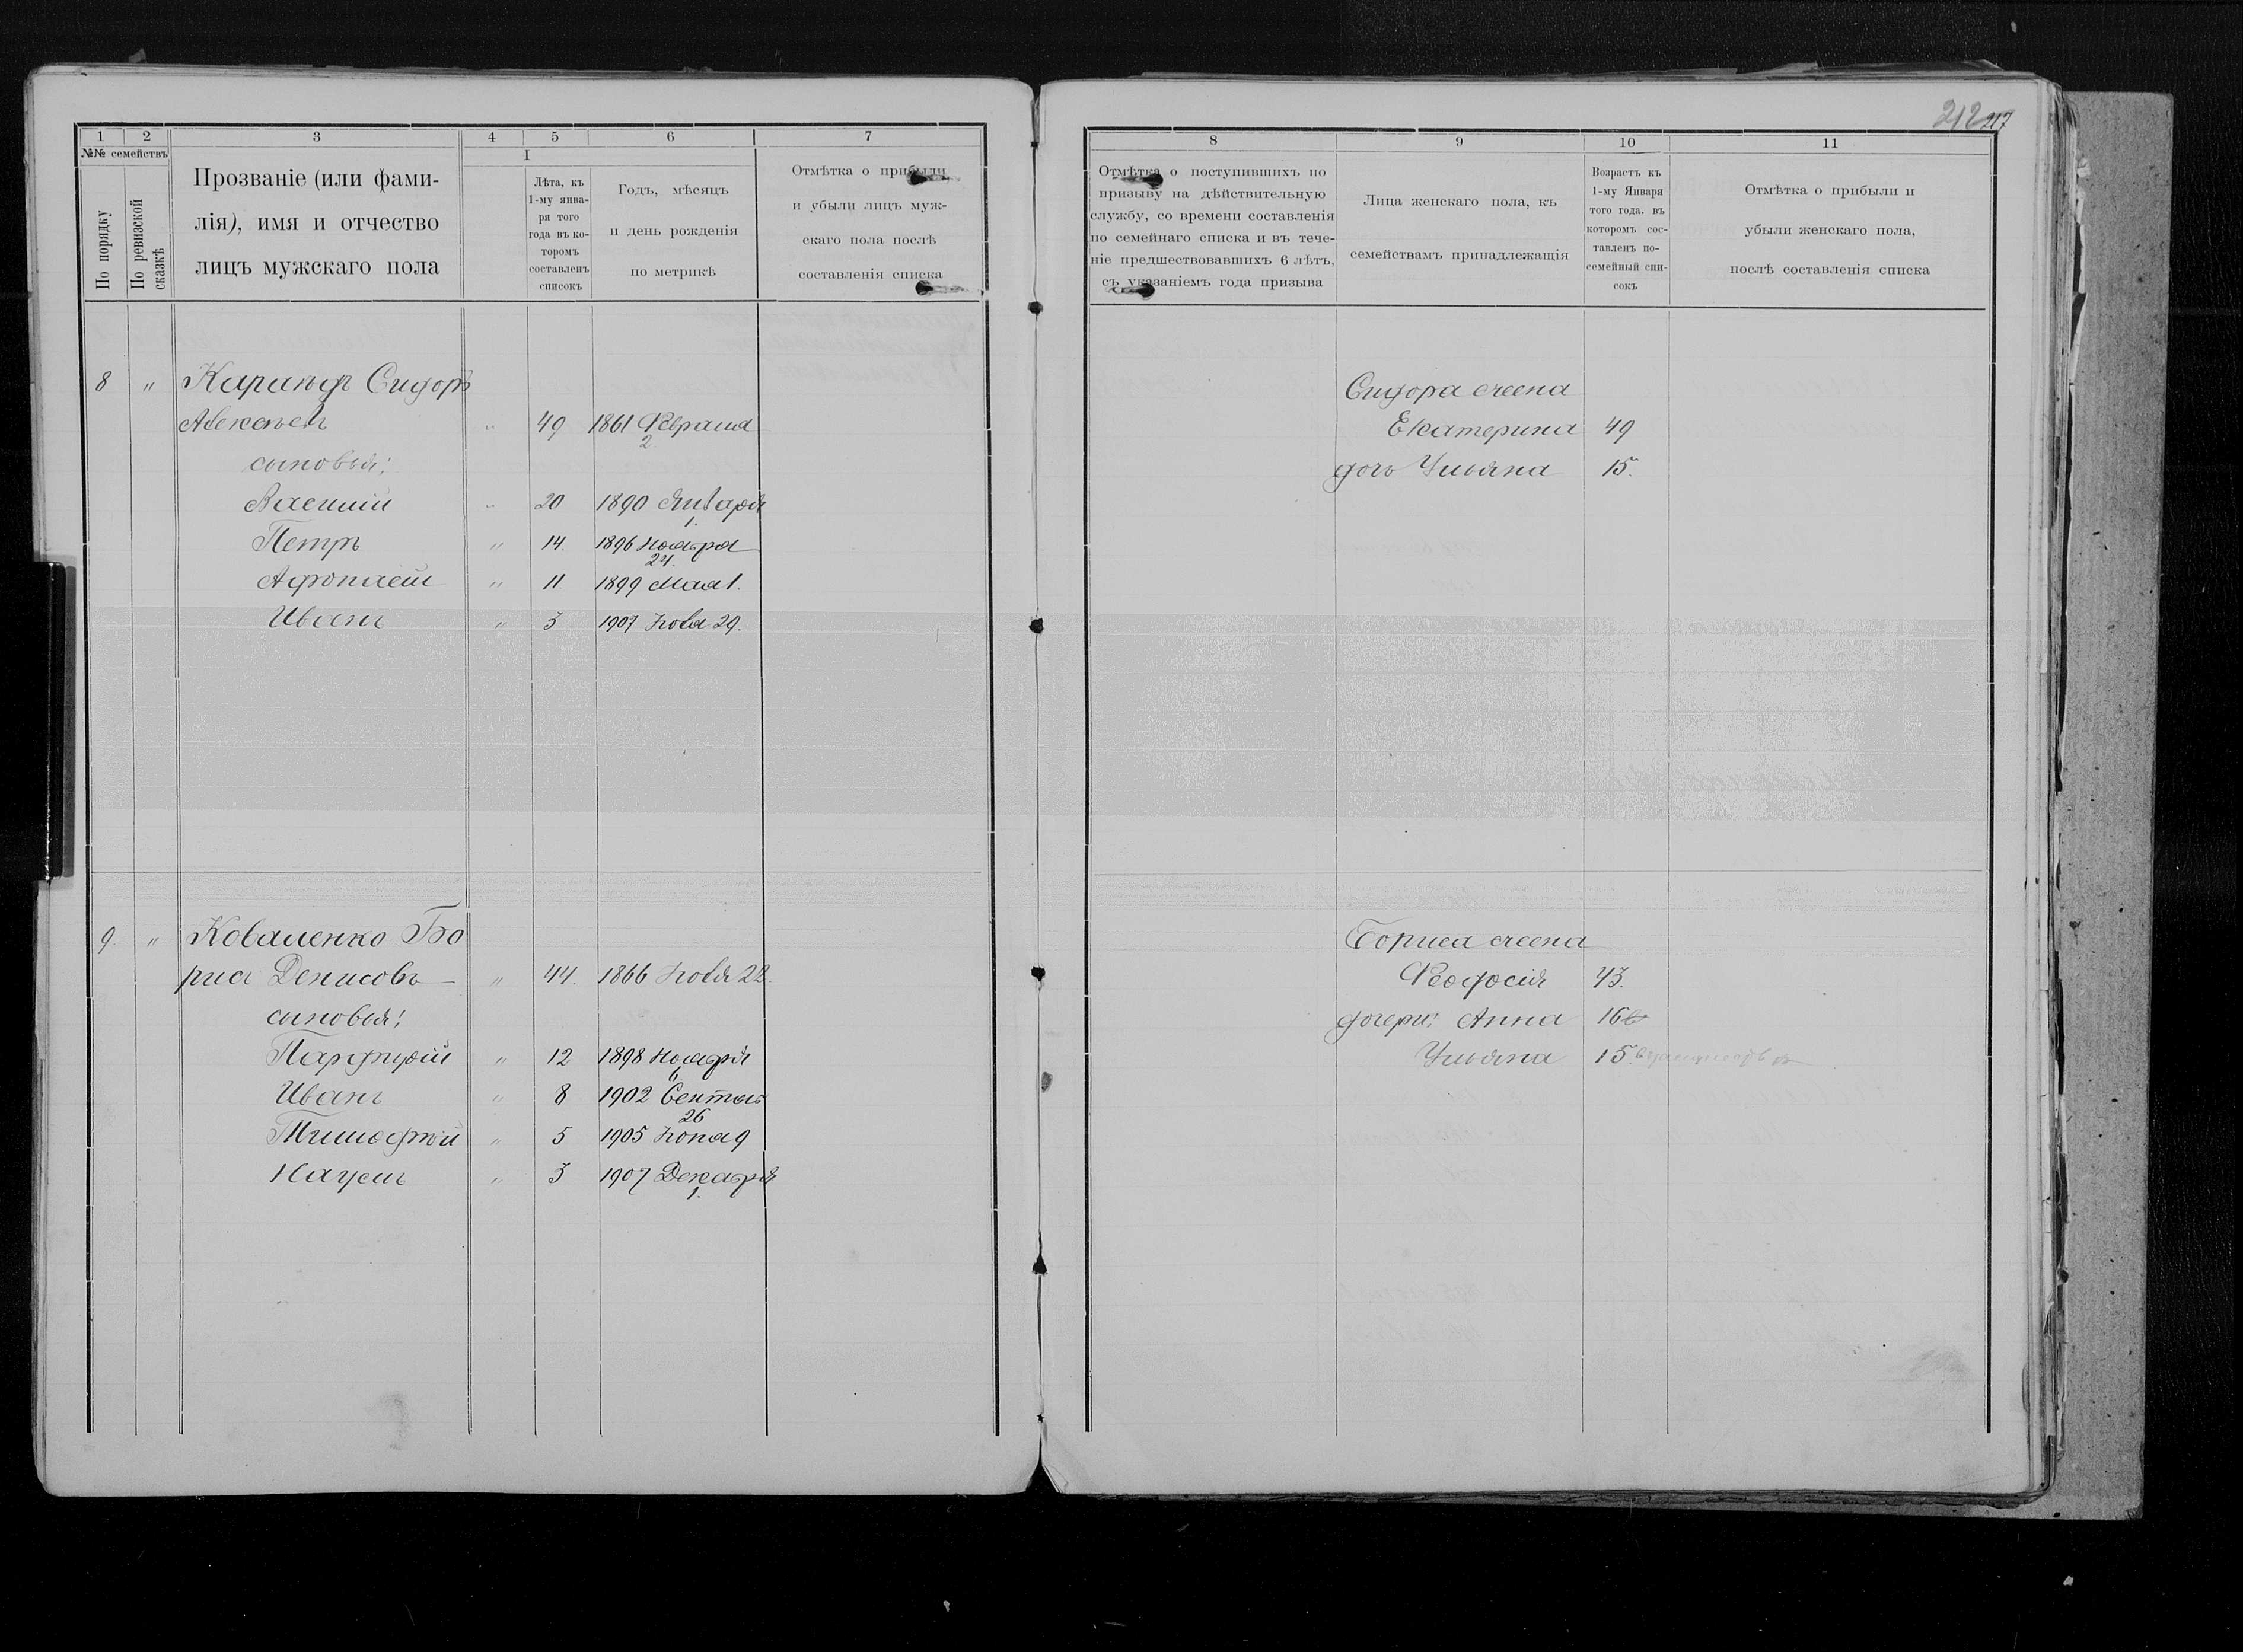 212 217
1 2 3 4 5 6 7
№№ семействъ
По порядку
По ревизской сказкѣ
Прозваніе (или фами-
лія), имя и отчество
лицъ мужскаго пола
I
Лѣта, къ
1-му янва-
ря того
года въ ко-
торомъ
составленъ
списокъ
Годъ, мѣсяцъ
и день рожденія
по метрикѣ
Отмѣтка о прибыли
и убыли лицъ муж-
скаго пола послѣ
составленія списка
8 " Сидоръ
Алексѣевъ " 49 1861 Февраля
2
сыновья:
Василій " 20 1890 Января
1.
Петръ " 14. 1896 Ноября
24.
Афонасій " 11. 1899 Мая 1.
Иванъ " 3 1907 29.
9. " Коваленко Бо
рисъ Денисовъ " 44. 1866 22.
сыновья:
Парфирій " 12 1898 Ноября
6
Иванъ " 8 1902 Сентяб
26
Тимофѣй " 5 1905 9
Наумъ " 3 1907 Декабря
1.
8 9 10 11
Отмѣтка о поступившихъ по
призыву на дѣйствительную
службу, со времени составленія
по семейнаго списка и въ тече-
ніе предшествовавшихъ 6 лѣтъ,
съ указаніемъ года призыва
Лица женскаго пола, къ
семействамъ принадлежащія
Возрастъ къ
1-му Января
того года. въ
которомъ сос-
тавленъ по-
семейный спи-
сокъ
Отмѣтка о прибыли и
убыли женскаго пола,
послѣ составленія списка
Сидора жена
Екатерина 49
дочь Ульяна 15.
Бориса жена
Феодосія 43.
дочери: Анна 16
Ульяна 15.